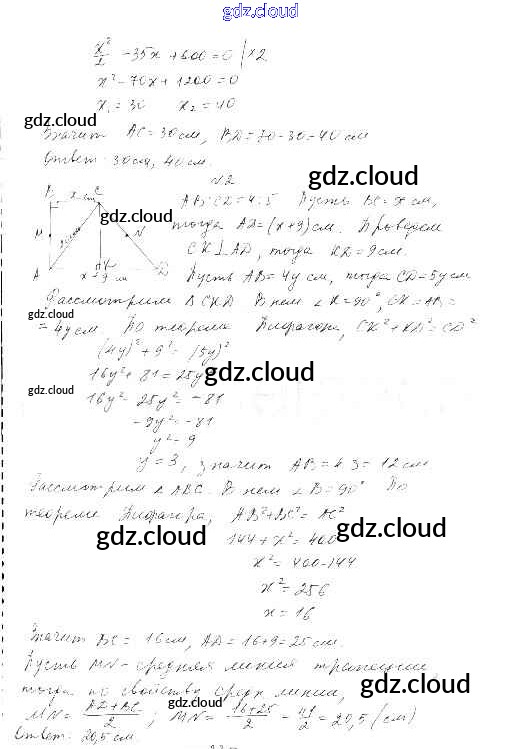 gdz.cloud
x²/2 - 35x + 600 = 0 | ×2
x² - 70x + 1200 = 0
x₁ = 30 x₂ = 40
gdz.cloud
Значит AC = 30 см, BD = 70 - 30 = 40 см
Ответ: 30 см, 40 см.
gdz.cloud
№2
AB:CD = 4:5 Пусть BC = x см,
тогда AD = (x+9) см. Проведем
CK⊥AD, тогда KD = 9 см.
Пусть AB = 4y см, тогда CD = 5y см
B x см C
gdz.cloud
M 20 см N
A x K 9 см D
Рассмотрим Δ CKD В нем ∠K = 90°, CK = AB =
gdz.cloud
= 4y см. По теореме Пифагора, CK² + KD² = CD²
(4y)² + 9² = (5y)²
16y² + 81 = 25y²
gdz.cloud
gdz.cloud
16y² - 25y² = -81
-9y² = -81
y² = 9
y = 3, значит AB = 4·3 = 12 см
Рассмотрим Δ ABC. В нем ∠B = 90° По
теореме Пифагора, AB² + BC² = AC²
gdz.cloud
gdz.cloud
144 + x² = 400
x² = 400 - 144
x² = 256
x = 16
Значит BC = 16 см, AD = 16 + 9 = 25 см.
Пусть MN - средняя линия трапеции,
gdz.cloud
тогда по свойству сред линии,
MN = (AD + BC)/2 ; MN = (16+25)/2 = 41/2 = 20,5 (см)
gdz.cloud
Ответ: 20,5 см